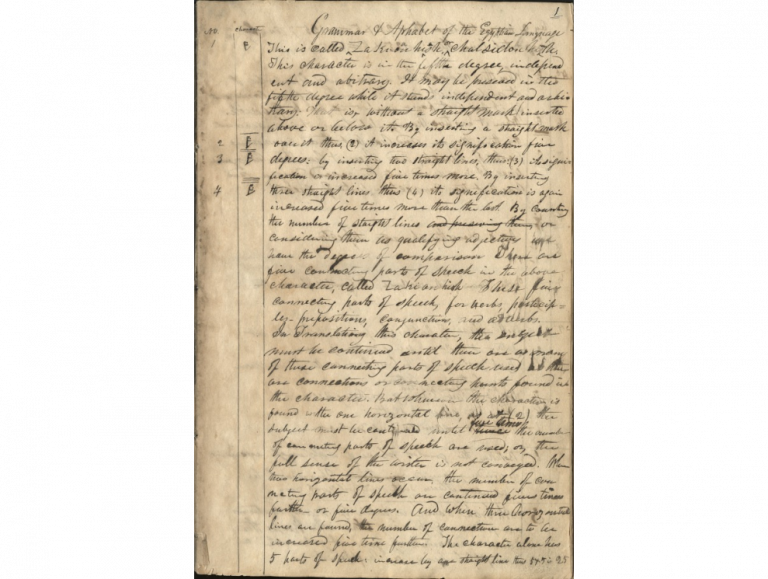 1
Grammar & Alphabet of the Egyptian Language
no character
1 This is called Za Ki on hish, chalsidon hish.
This character is in the fifth degree, independ
ent and arbitrary. It may be preserved in the
fifth degree while it stands independent and arbi
trary: That is, without a straight mark inserted
above or below it. By inserting a straight mark
2 over it thus, (2) it increases its signification five
3 degrees: by inserting two straight lines, thus: (3) its signi
fication is increased five times more. By inserting
4 three straight lines thus (4) its signification is again
increased five times more than the last. By counting
the number of straight lines and preserving them, or
considering them as qualifying adjectives we
have the degrees of comparison There are
five connecting parts of speech in the above
character, called Za ki on hish These five
connecting parts of speech, for verbs, particip-
les- prepositions, conjunctions, and adverbs.
In Translating this character, this subject
must be continued until there are as many
of these connecting parts of speech used as there
are connections or connecting points found in
the character. But whenever the character is
found with one horizontal line, as at (2) the
subject must be continued until five times the number
of connecting parts of speech are used; or, the
full sense of the writer is not conveyed. When
two horizontal lines occur, the number of con
necting parts of speech are continued five times
further- or five degrees. And when three horizontal
lines are found, the number of connections are to be
increased five times further. The character alone has
5 parts of speech: increase by one straight line thus 5x5 is 25